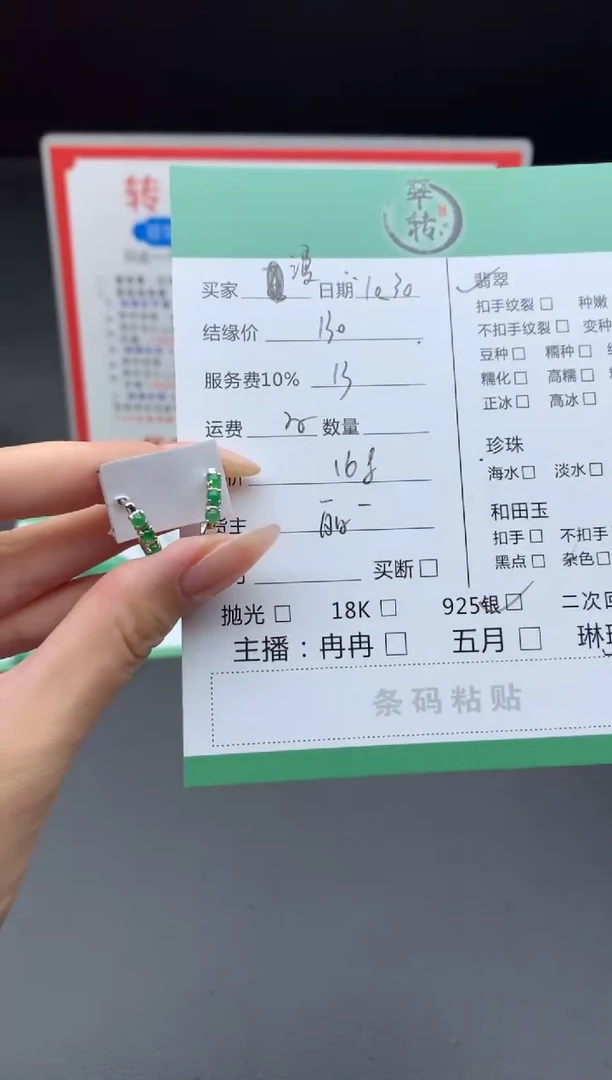 转
翠转
买家 漫 日期 10 30
结缘价 130
服务费10% 13
运费 20 数量
价 168
货主
买断
抛光 18K 925银 二次回
主播：冉冉 五月 琳
条码粘贴
翡翠
扣手纹裂 种嫩
不扣手纹裂 变种
豆种 糯种
糯化 高糯
正冰 高冰
珍珠
海水 淡水
和田玉
扣手 不扣手
黑点 杂色